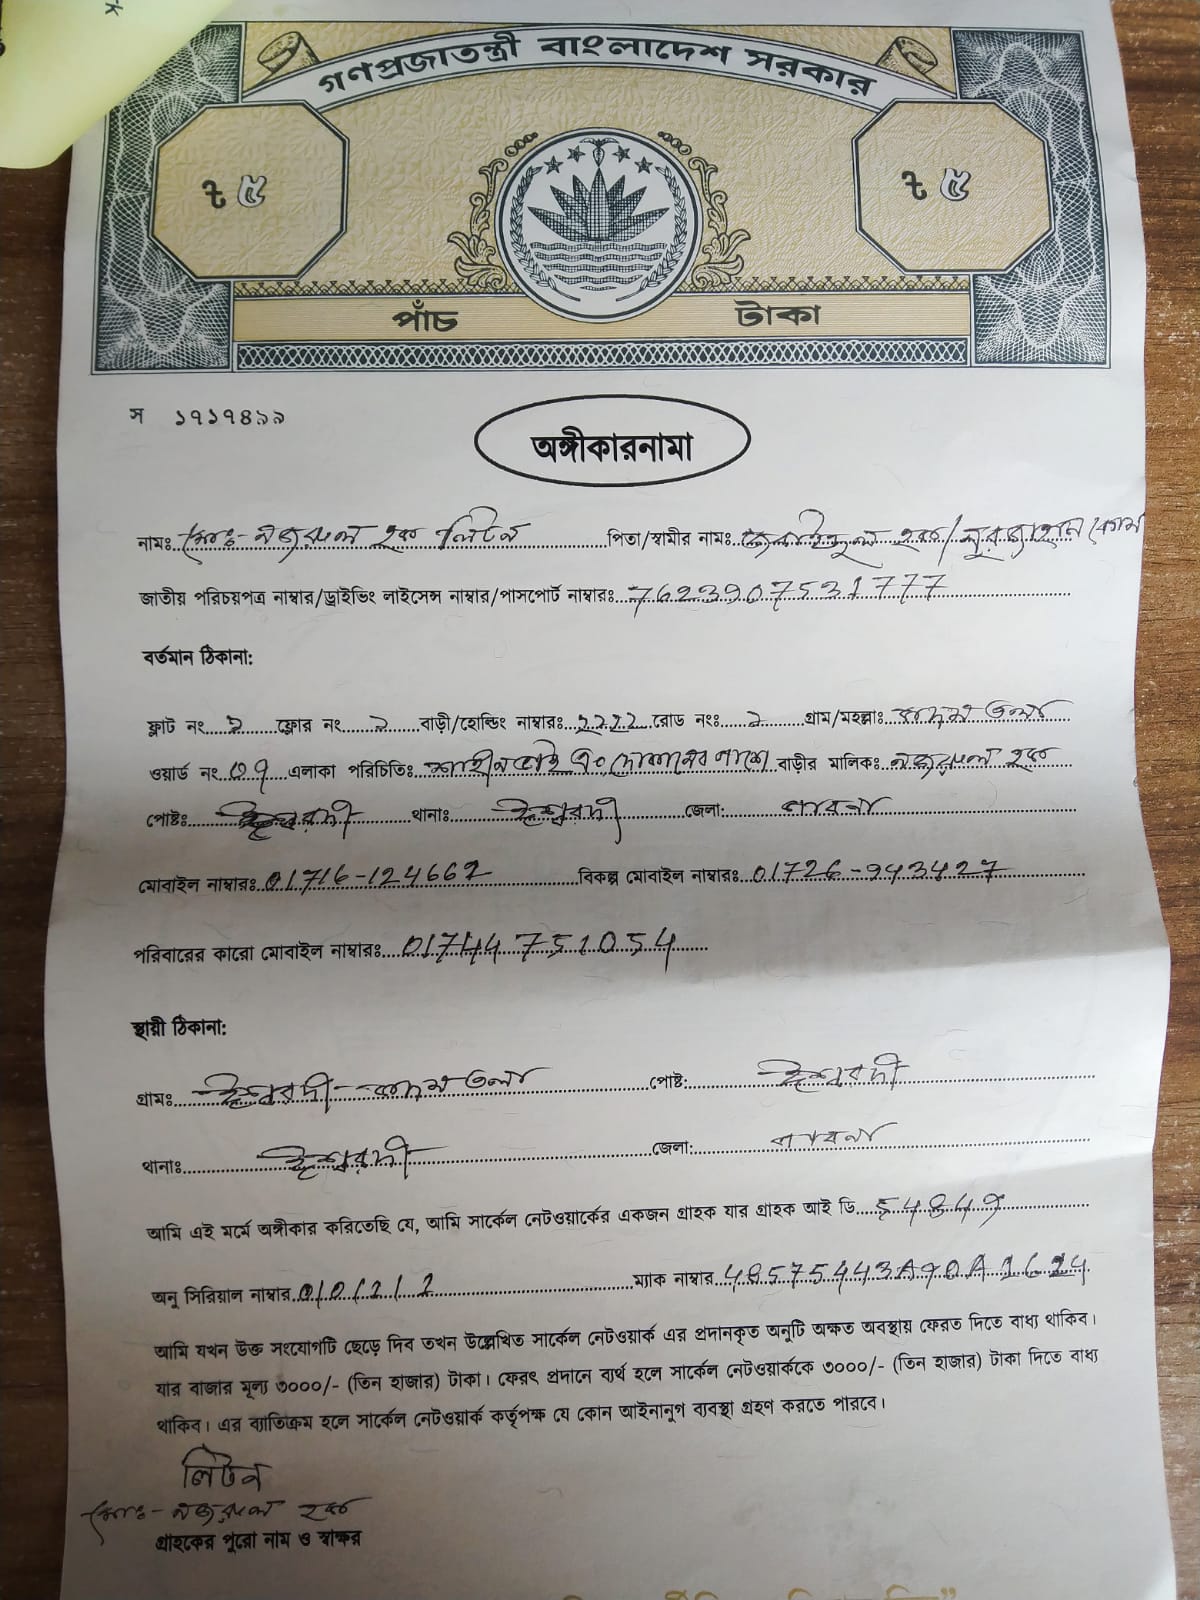 গণপ্রজাতন্ত্রী বাংলাদেশ সরকার
৳ ৫ ৳ ৫
পাঁচ টাকা
স ১৭১৭৪৯৯
অঙ্গীকারনামা
নামঃ মোঃ- নজরুল হক লিটন পিতা/স্বামীর নামঃ হক/নুরজাহান বেগম
জাতীয় পরিচয়পত্র নাম্বার/ড্রাইভিং লাইসেন্স নাম্বার/পাসপোর্ট নাম্বারঃ 7623907531777
বর্তমান ঠিকানা:
ফ্লাট নং ফ্লোর নং বাড়ী/হোল্ডিং নাম্বারঃ রোড নংঃ গ্রাম/মহল্লাঃ কদম তলা
ওয়ার্ড নং ০৭ এলাকা পরিচিতিঃ দোকানের পাশে বাড়ীর মালিকঃ নজরুল হক
পোষ্টঃ ঈশ্বরদী থানাঃ ঈশ্বরদী জেলা: পাবনা
মোবাইল নাম্বারঃ 01716-124662 বিকল্প মোবাইল নাম্বারঃ 01726-943427
পরিবারের কারো মোবাইল নাম্বারঃ 01744751054
স্থায়ী ঠিকানা:
গ্রামঃ ঈশ্বরদী- কদম তলা পোষ্ট: ঈশ্বরদী
থানাঃ ঈশ্বরদী জেলা: পাবনা
আমি এই মর্মে অঙ্গীকার করিতেছি যে, আমি সার্কেল নেটওয়ার্কের একজন গ্রাহক যার গ্রাহক আই ডি
অনু সিরিয়াল নাম্বার ম্যাক নাম্বার
আমি যখন উক্ত সংযোগটি ছেড়ে দিব তখন উল্লেখিত সার্কেল নেটওয়ার্ক এর প্রদানকৃত অনুটি অক্ষত অবস্থায় ফেরত দিতে বাধ্য থাকিব।
যার বাজার মূল্য ৩০০০/- (তিন হাজার) টাকা। ফেরৎ প্রদানে ব্যর্থ হলে সার্কেল নেটওয়ার্ককে ৩০০০/- (তিন হাজার) টাকা দিতে বাধ্য
থাকিব। এর ব্যাতিক্রম হলে সার্কেল নেটওয়ার্ক কর্তৃপক্ষ যে কোন আইনানুগ ব্যবস্থা গ্রহণ করতে পারবে।
লিটন
মোঃ- নজরুল হক
গ্রাহকের পুরো নাম ও স্বাক্ষর